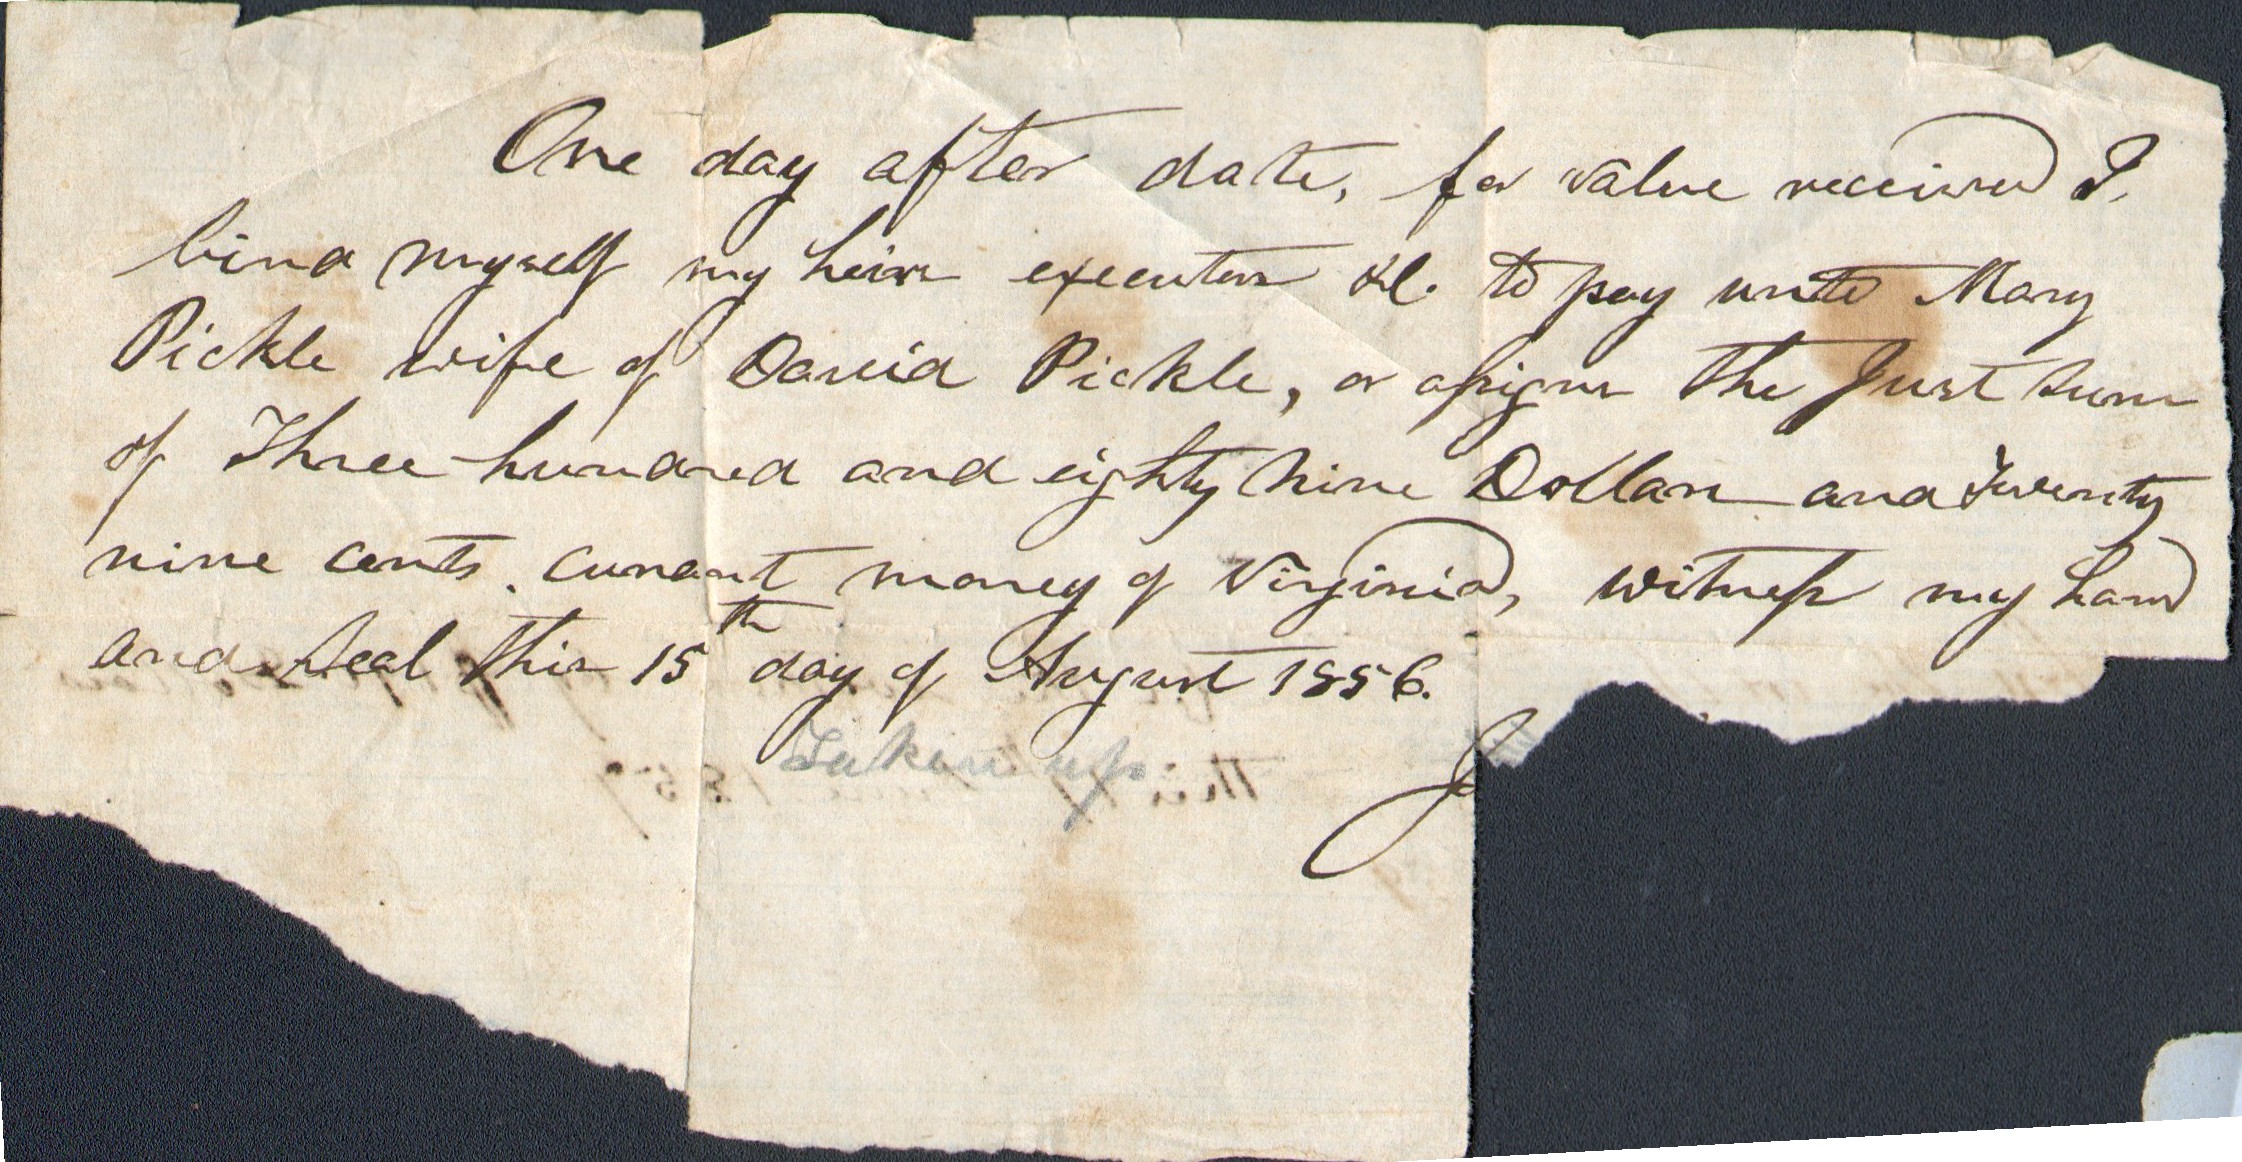 One day after date, for value received I.
bind myself my heirs executors &c. to pay unto Mary
Pickle wife of David Pickle, or assigns the Just sum
of Three hundred and eighty nine Dollars and Twenty
nine cents. curant money of Virginia, witness my hand
and seal this 15th day of August 1856.
Taken up
J